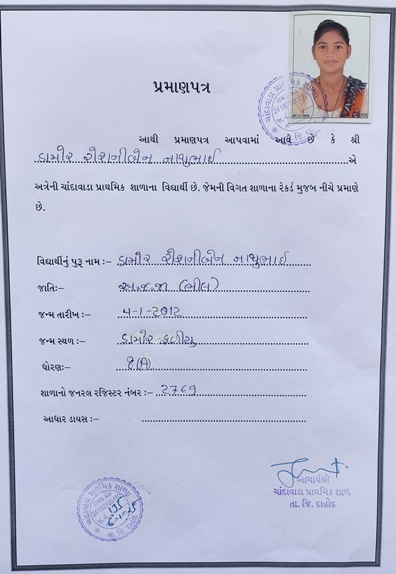 પ્રમાણપત્ર
આથી પ્રમાણપત્ર આપવામાં આવે છે કે શ્રી
ડામોર રોશનીબેન નાથુભાઈ એ
અત્રેની ચાંદાવાડા પ્રાથમિક શાળાના વિદ્યાર્થી છે. જેમની વિગત શાળાના રેકર્ડ મુજબ નીચે પ્રમાણે
છે.
વિદ્યાર્થીનું પુરૂ નામ :- ડામોર રોશનીબેન નાથુભાઈ
જાતિઃ- અ.જ.જા (ભીલ)
જન્મ તારીખ :- 4-1-2012
જન્મ સ્થળ :- ડામોર ફળીયુ
ધોરણઃ- 8(A)
શાળાનો જનરલ રજિસ્ટર નંબર :- 2769
આધાર ડાયસ :-
આચાર્યશ્રી
ચાંદાવાડા પ્રાથમિક શાળ
તા. જિ. દાહોદ
ચાંદાવાડા પ્રાથમિક શાળા